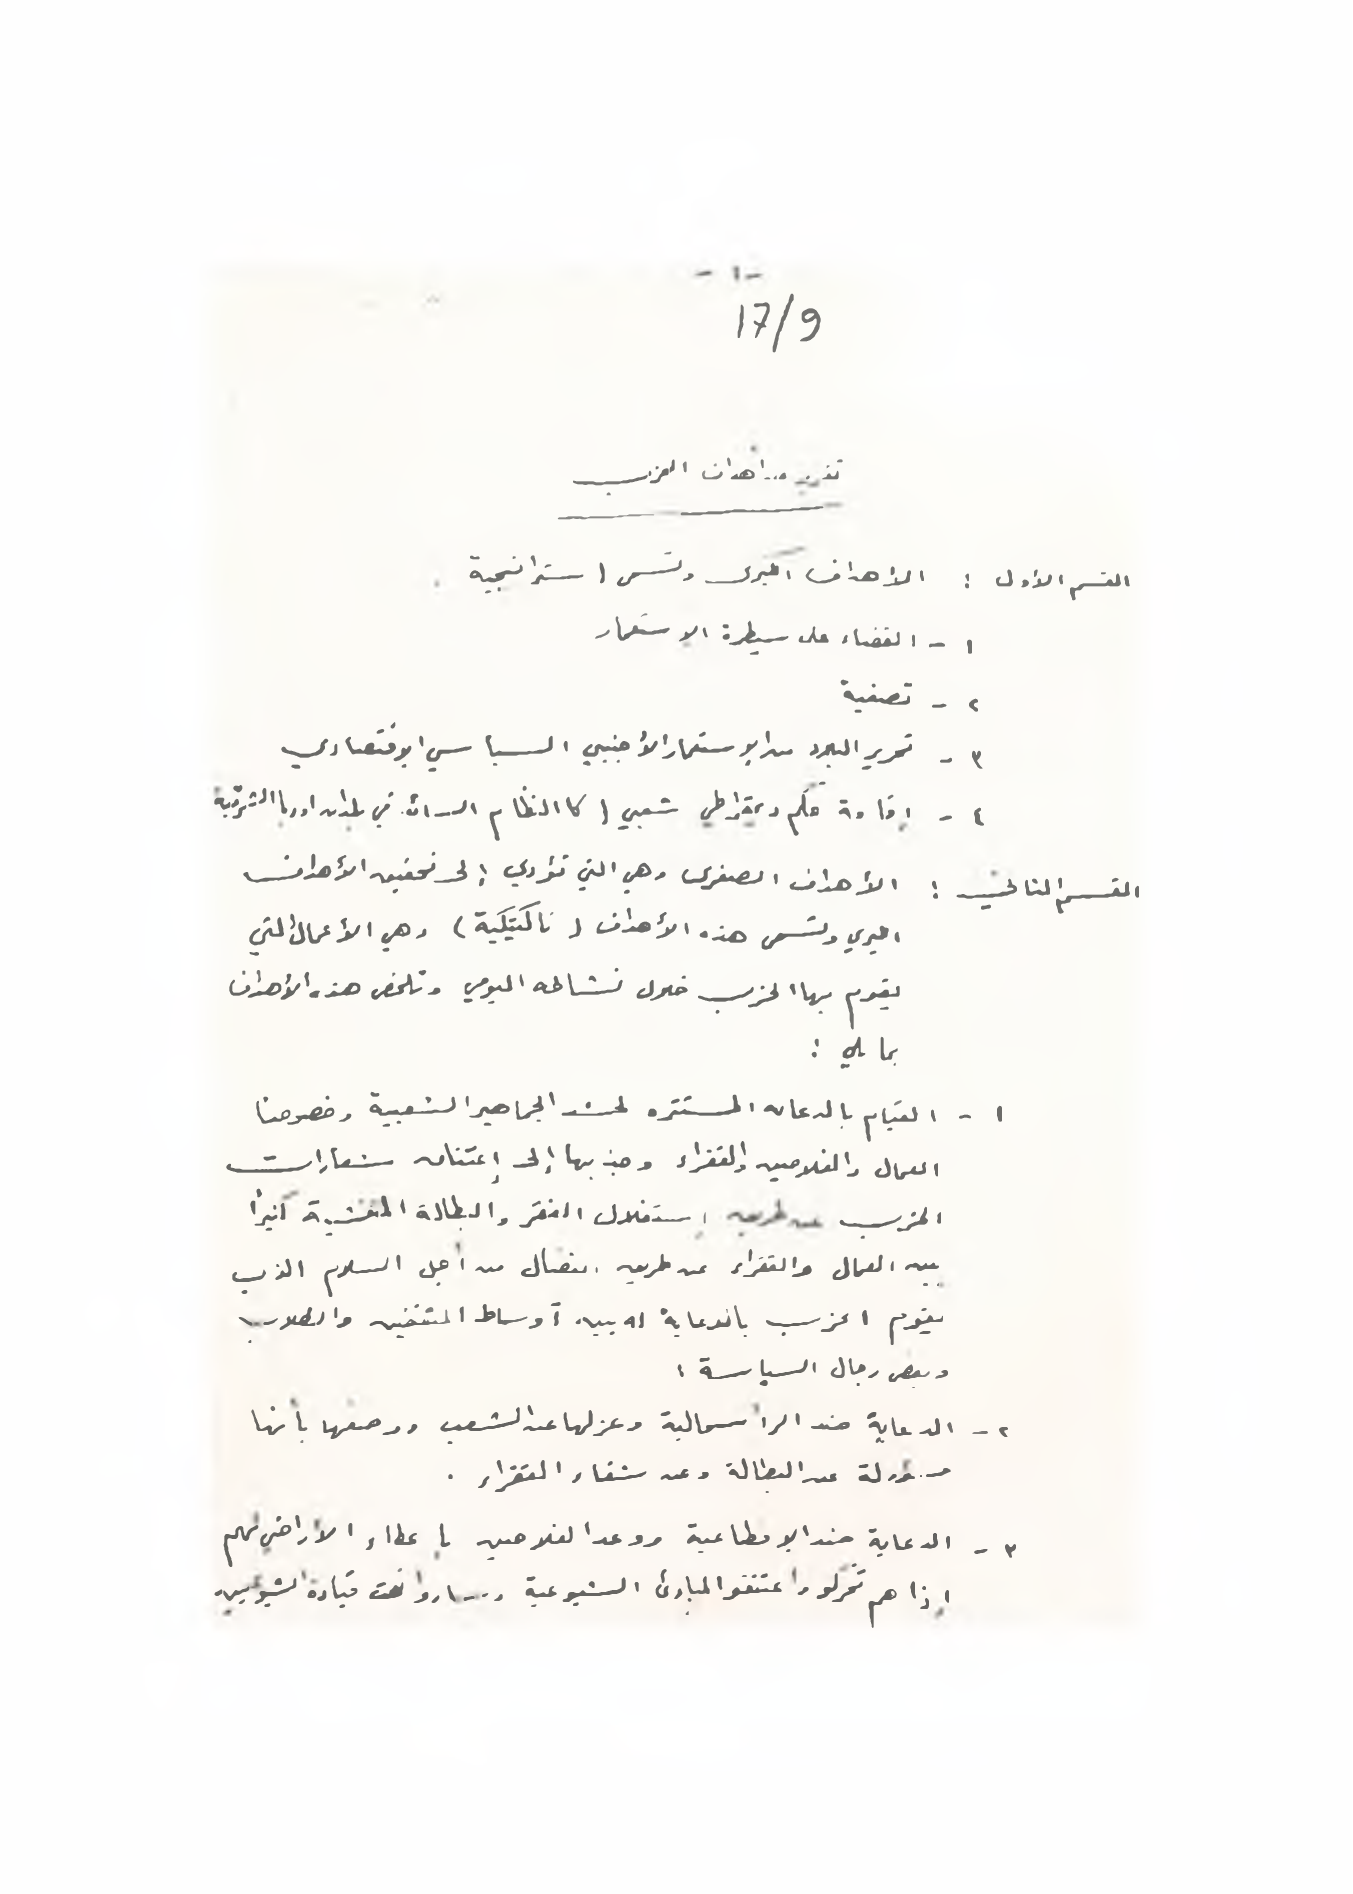 - ١ -
17/9
تقرير عن أهداف الحزب
القسم الأول : الأهداف الكبرى وتسمى ( ستراتيجية .
١ - القضاء على سيطرة الاستعمار
٢ - تصفية
٣ - تحرير البلاد من الإستعمار الأجنبي السياسي الإقتصادي
٤ - إقامة حكم ديمقراطي شعبي ( كالنظام السائد في بلدان اوربا الشرقية
القسم الثاني : الأهداف الصغرى وهي التي تؤدي إلى تحقيق الأهداف
الكبرى وتسمى هذه الأهداف ( تاكتيكية ) وهي الأعمال التي
يقوم بها الحزب خلال نشاطه اليومي وتلخص هذه الأهداف
بما يلي :
١ - القيام بالدعاية المستترة لحشد الجماهير الشعبية وخصوصا
العمال والفلاحين والفقراء وجذبها إلى إعتناق شعارات
الحزب عن طريق إستغلال الفقر والبطالة المتفشية كثيراً
بين العمال والفقراء عن طريق النضال من أجل السلام الذي
يقوم الحزب بالدعاية له بين أوساط المثقفين والطلاب
وبعض رجال السياسة :
٢ - الدعاية ضد الرأسمالية وعزلها عن الشعب ووصفها بأنها
مسؤولة عن البطالة وعن شقاء الفقراء .
٣ - الدعاية ضد الإقطاعية ووعد الفلاحين بإعطاء الأراضي لهم
إذا هم تحركو واعتنقو المبادئ الشيوعية وساروا تحت قيادة الشيوعيين